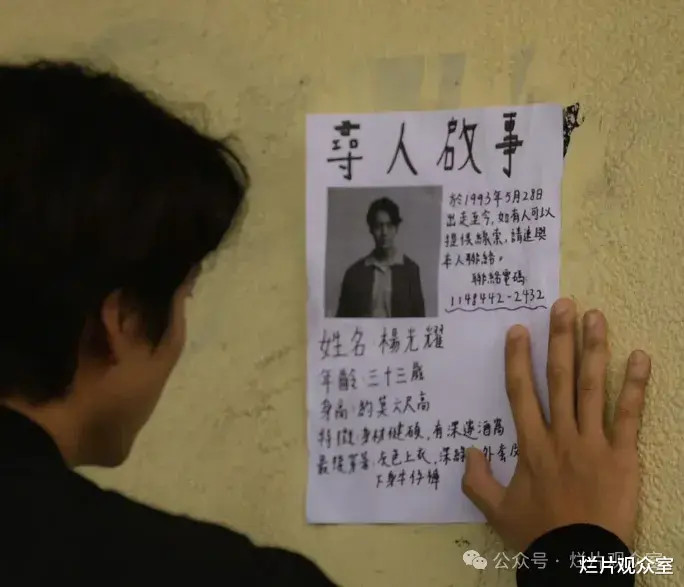 尋人啟事
於1993年5月28日
出走至今,如有人可以
提供線索,請速與
本人聯絡。
聯絡電碼
1148442-2432
姓名:楊光耀
年齡:三十三歲
身高:約莫六尺高
特徵:身材健碩,有深邃酒窩
最後穿著:灰色上衣,深綠 外套
下身牛仔褲
公众号·烂片观众室
烂片观众室